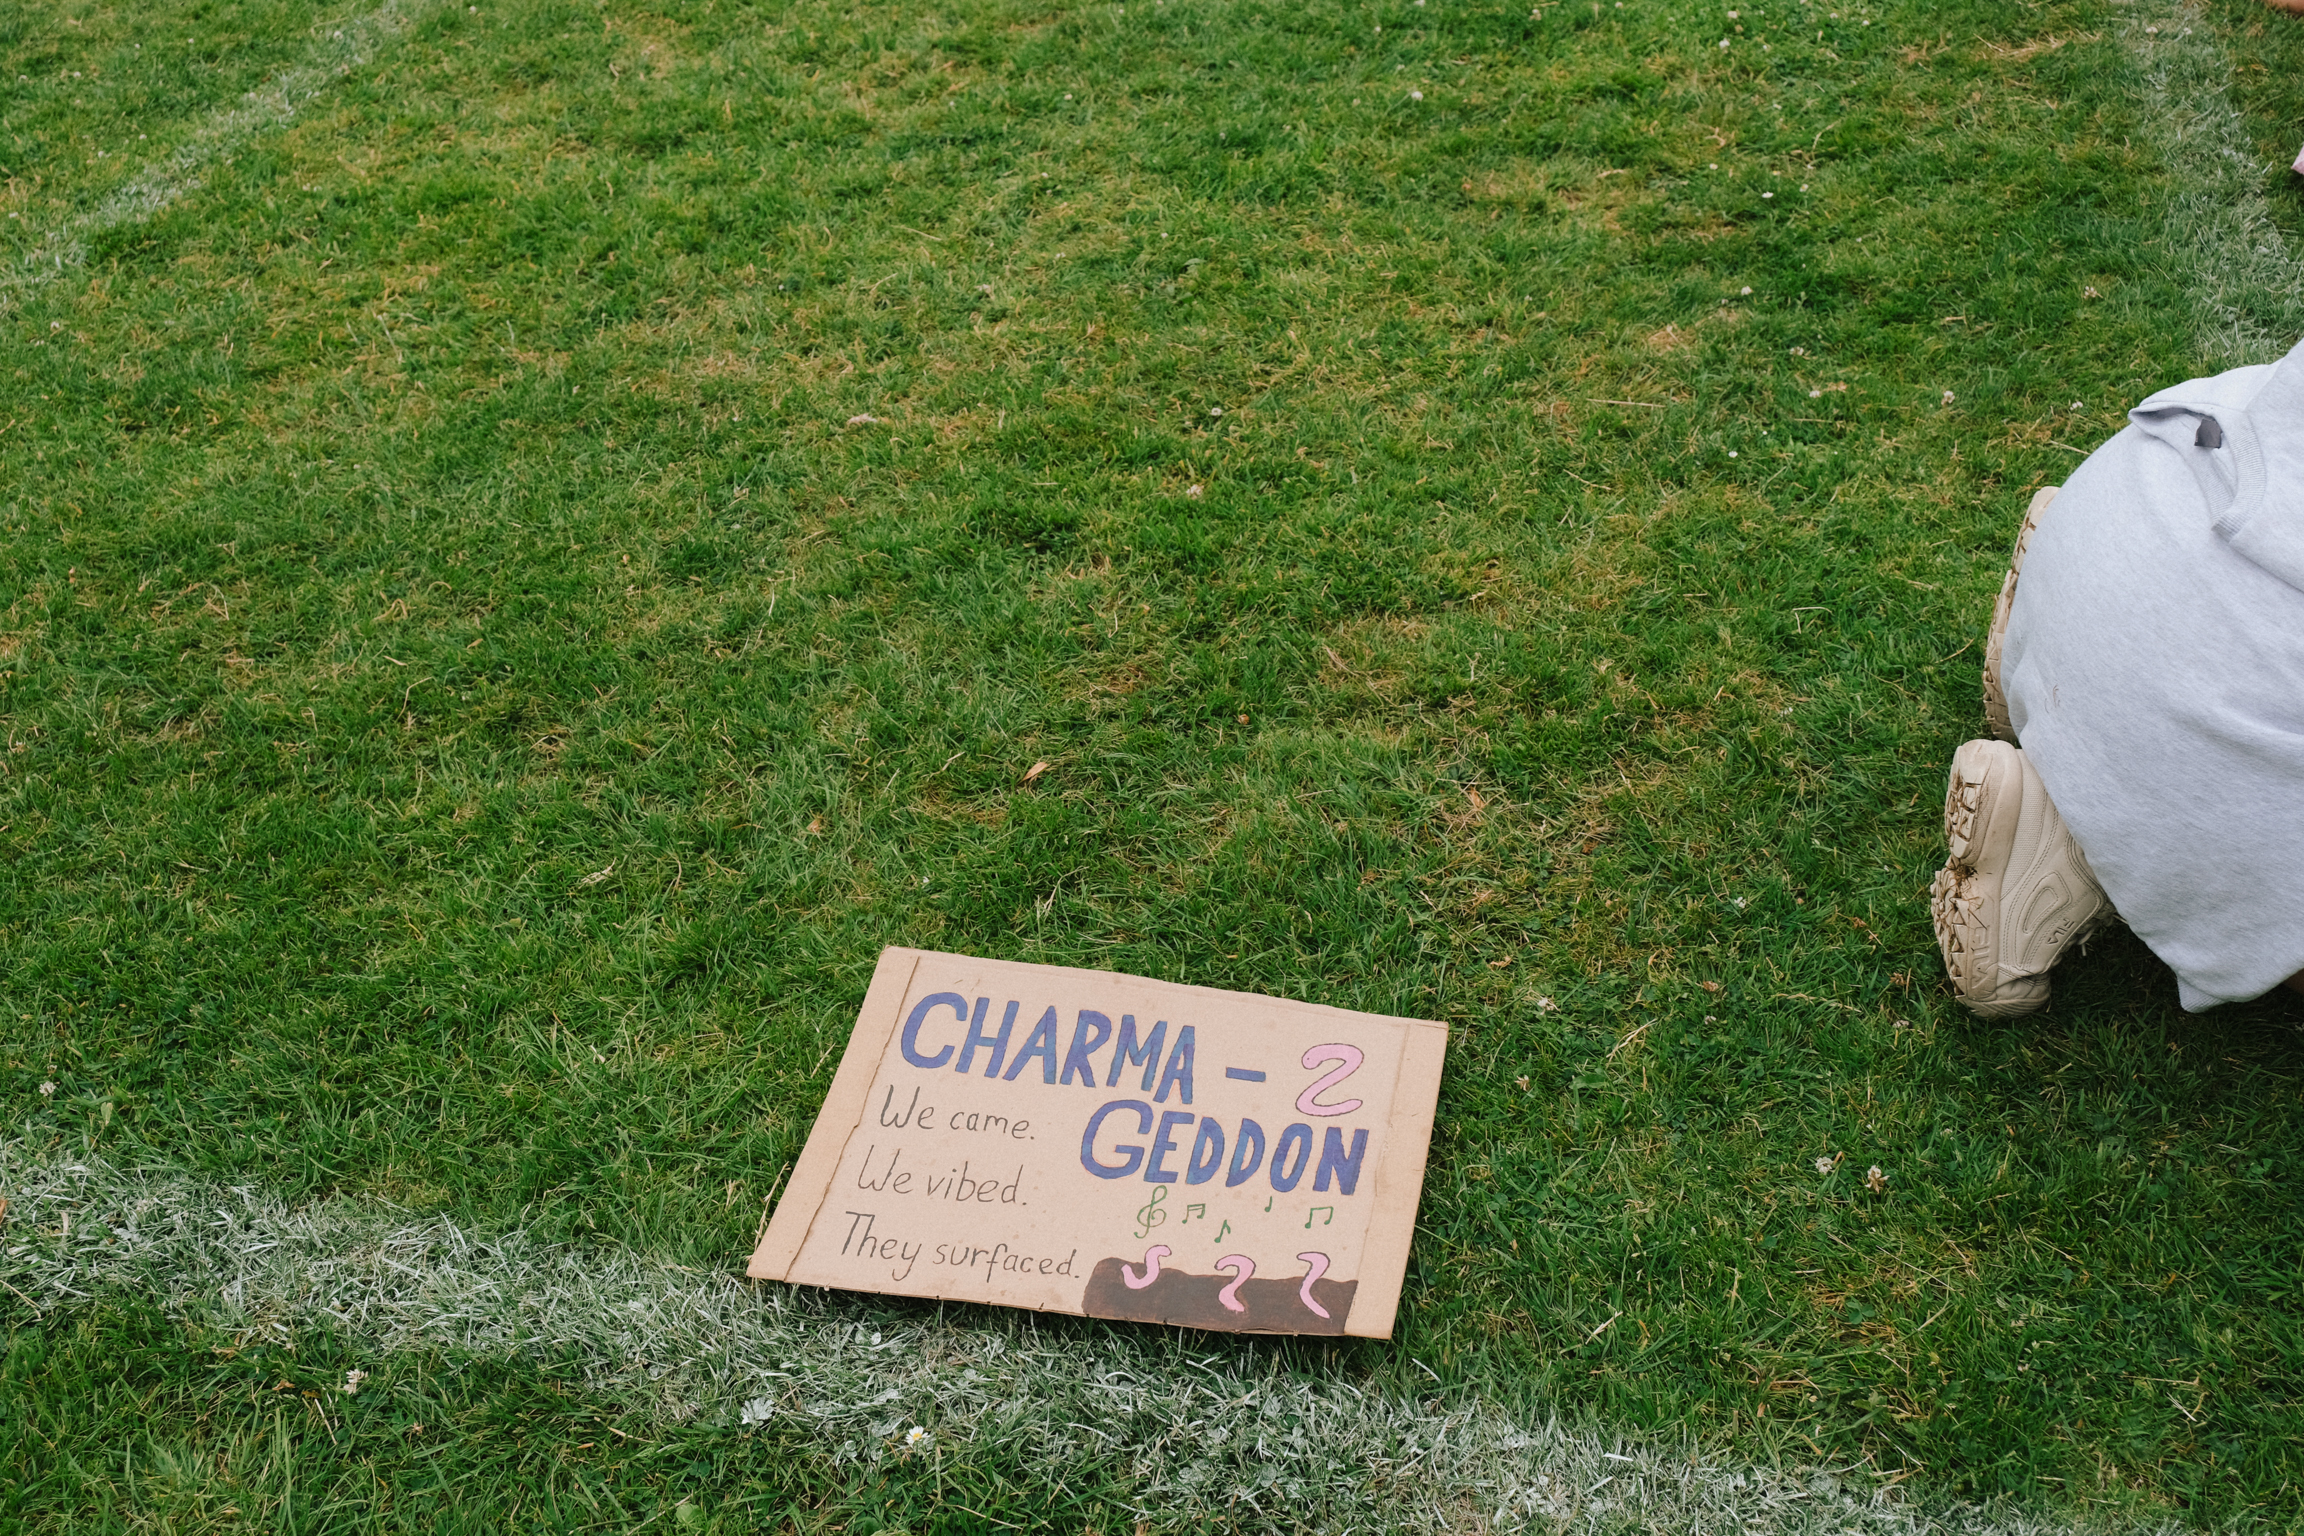 CHARMA - 2
GEDDON
We came.
We vibed.
They surfaced.
FILA
FILA